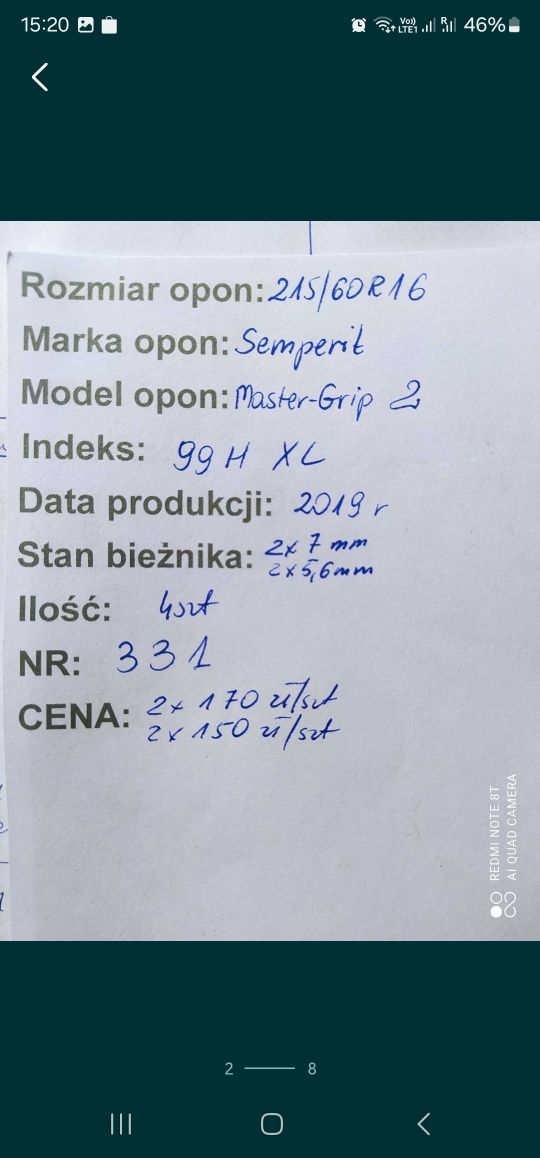 15:20 Vo) LTE1 R 46%
Rozmiar opon: 215/60R16
Marka opon: Semperit
Model opon: Master-Grip 2
Indeks: 99H XL
Data produkcji: 2019 r
Stan bieżnika: 2x 7 mm
2x5,6mm
Ilość: 4szt
NR: 331
CENA: 2x 170 zł/szt
2x 150 zł/szt
REDMI NOTE 8T
AI QUAD CAMERA
2 8